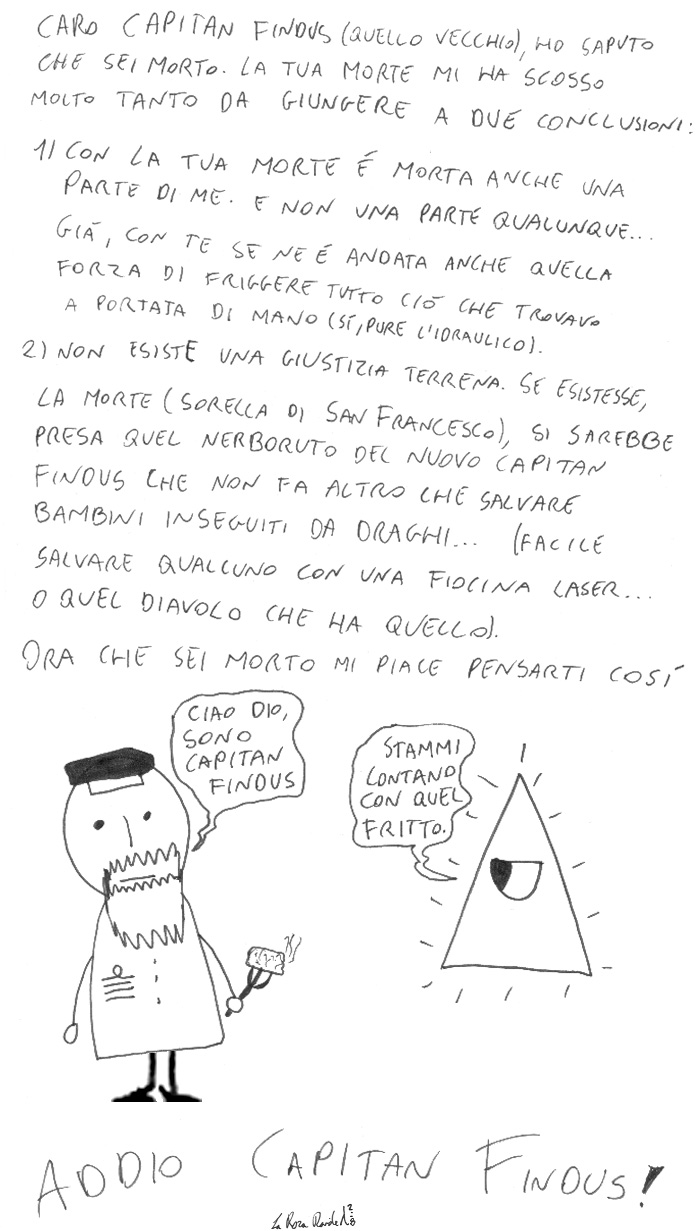 CARO CAPITAN FINDUS (QUELLO VECCHIO), HO SAPUTO
CHE SEI MORTO. LA TUA MORTE MI HA SCOSSO
MOLTO TANTO DA GIUNGERE A DUE CONCLUSIONI:
1) CON LA TUA MORTE É MORTA ANCHE UNA
PARTE DI ME. E NON UNA PARTE QUALUNQUE...
GIÁ, CON TE SE NE É ANDATA ANCHE QUELLA
FORZA DI FRIGGERE TUTTO CIÓ CHE TROVAVO
A PORTATA DI MANO (SÍ, PURE L'IDRAULICO).
2) NON ESISTE UNA GIUSTIZIA TERRENA. SE ESISTESSE,
LA MORTE (SORELLA DI SAN FRANCESCO), SI SAREBBE
PRESA QUEL NERBORUTO DEL NUOVO CAPITAN
FINDUS CHE NON FA ALTRO CHE SALVARE
BAMBINI INSEGUITI DA DRAGHI... (FACILE
SALVARE QUALCUNO CON UNA FIOCINA LASER...
O QUEL DIAVOLO CHE HA QUELLO).
ORA CHE SEI MORTO MI PIACE PENSARTI COSÍ
CIAO DIO,
SONO
CAPITAN
FINDUS
STAMMI
LONTANO
CON QUEL
FRITTO.
ADDIO CAPITAN FINDUS!
La Rosa